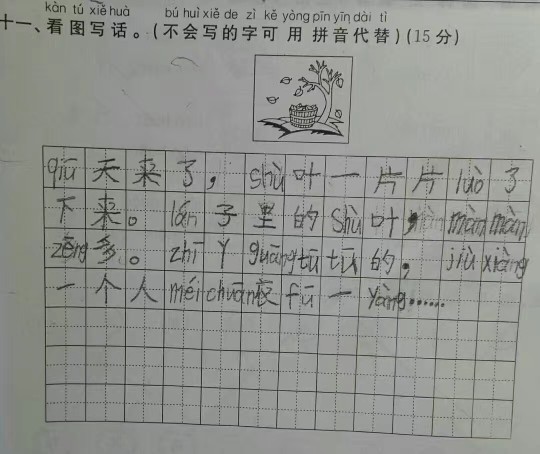 kàn tú xiě huà bú huì xiě de zì kě yòng pīn yīn dài tì
十一、看图写话。(不会写的字可用拼音代替)(15分)
qiū天来了，shù叶一片片luò了
下来。lán子里的shù叶màn màn
zēng多。zhī丫guāng tū tū的，jiù xiàng
一个人méi chuān衣fū一yàng……